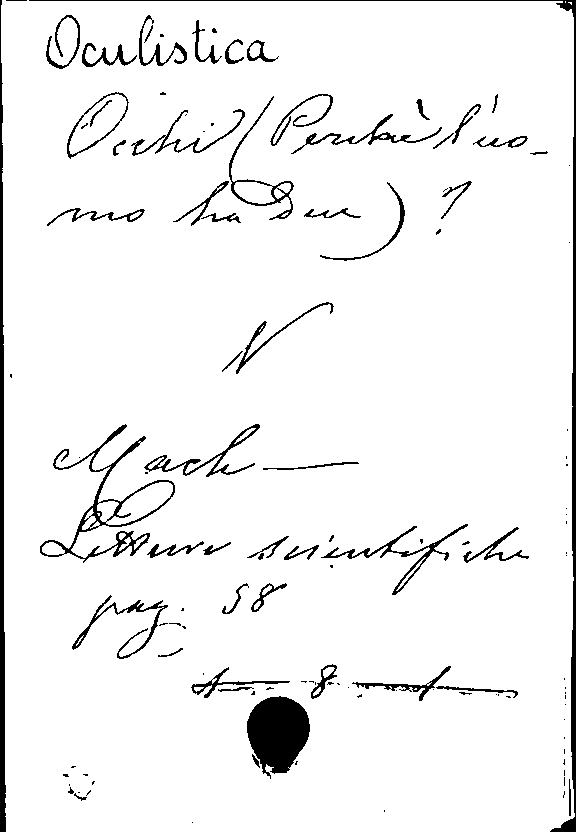 Oculistica
Occhi (Perchè l'uo-
mo ha due)?
V
Mach —
Letture scientifiche
pag. 58
8